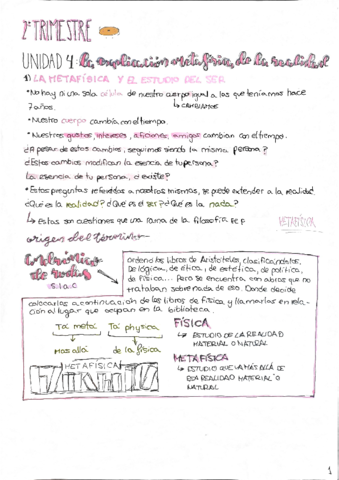 2º TRIMESTRE
UNIDAD 4: la explicación metafísica de la realidad
1) LA METAFÍSICA Y EL ESTUDIO DEL SER
• No hay ni una sola célula de nuestro cuerpo igual a las que teníamos hace
↳ CAMBIANTES
7 años.
• Nuestro cuerpo cambia con el tiempo.
• Nuestros gustos, intereses, aficiones, amigos cambian con el tiempo.
¿A pesar de estos cambios, seguimos siendo la misma persona?
¿Estos cambios modifican la esencia de tu persona?
La esencia de tu persona, ¿existe?
• Estas preguntas referidas a nosotros mismos, se puede extender a la realidad
¿Qué es la realidad? ¿Qué es el ser? ¿Qué es la nada?
↳ Estas son cuestiones que una rama de la filosofía
METAFÍSICA
origen del término
Andrónico
de rodas
S. I a. C
ordenó los libros de Aristóteles, clasificándolos.
De lógica, de ética, de estética, de política,
de física... Pero se encuentra con obras que no
trataban sobre nada de eso. Donde decide
colocarlos a continuación de los libros de física, y llamarlos en rela-
ción al lugar que ocupan en la biblioteca.
Ta metá Ta physica
Mas allá de la física
METAFÍSICA
FÍSICA
↳ ESTUDIO DE LA REALIDAD
MATERIAL O NATURAL
METAFÍSICA
↳ ESTUDIO QUE VA MÁS ALLÁ DE
ESA REALIDAD MATERIAL O
NATURAL
1